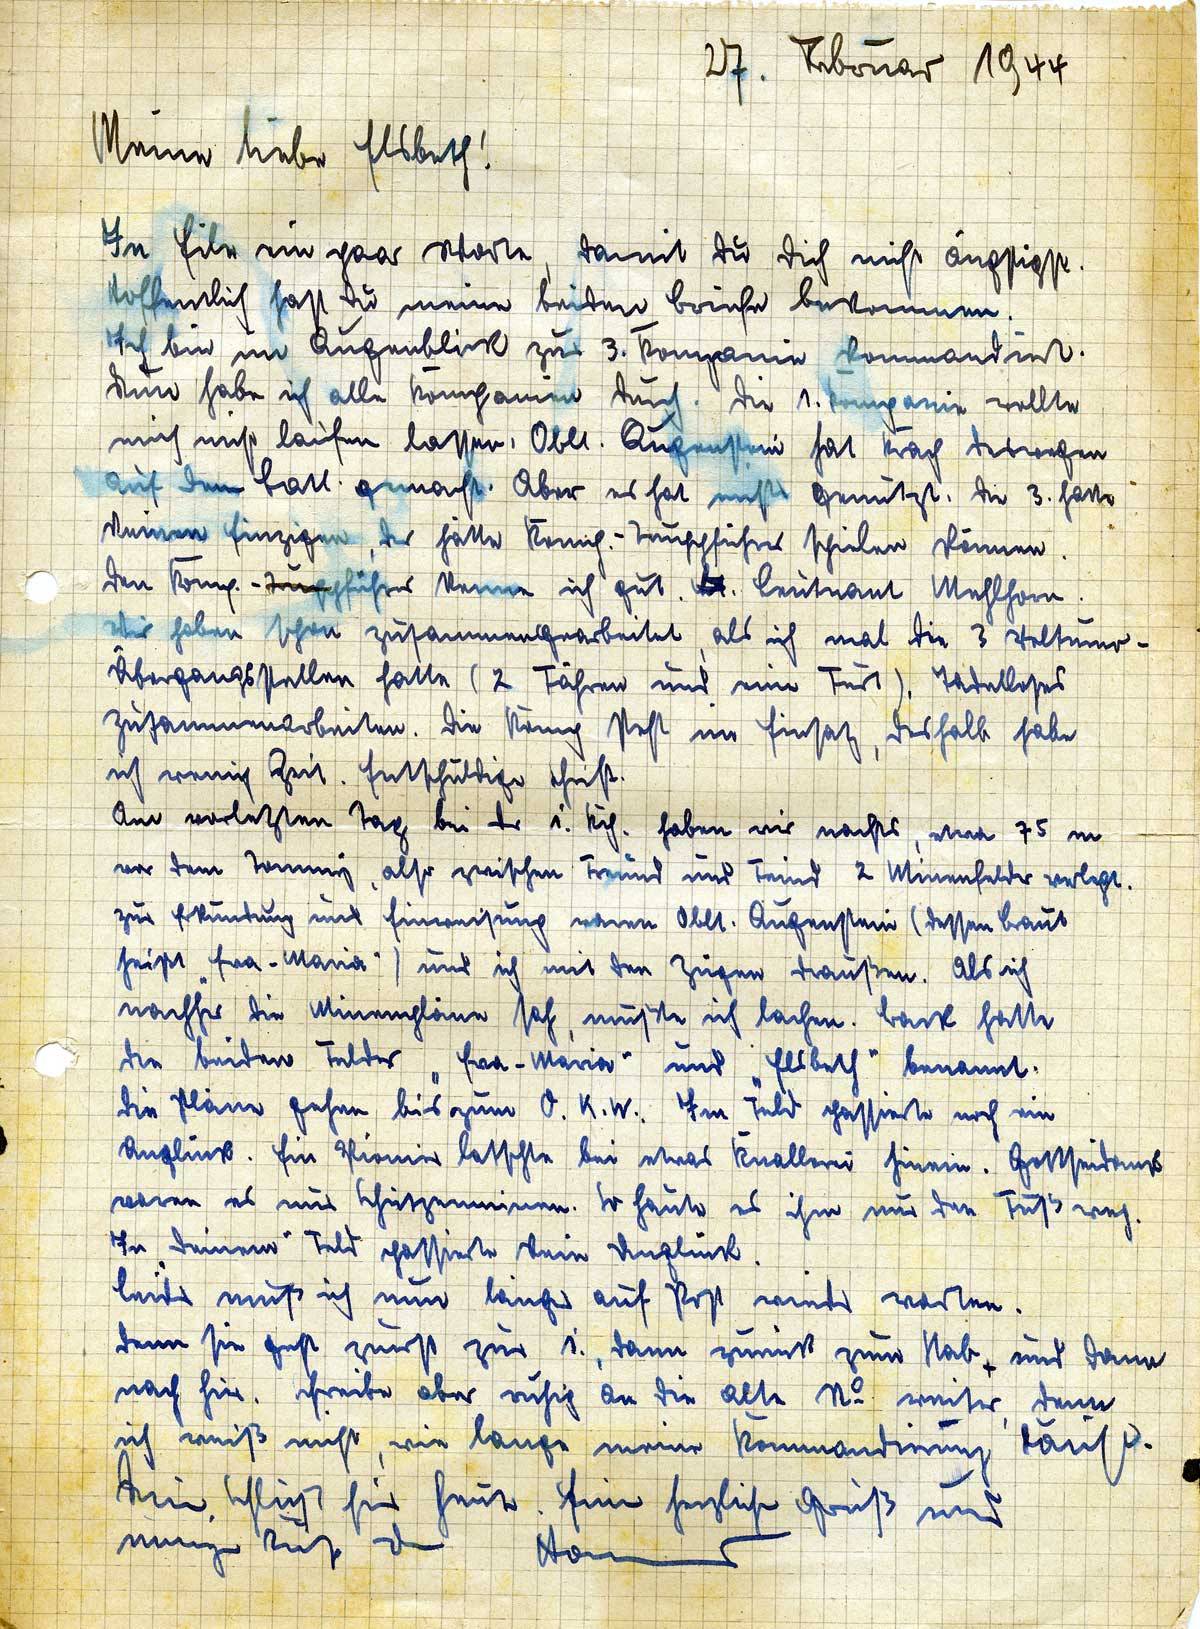 27. Februar 1944
Meine liebe Elsbeth!
In Eile ein paar Worte, damit Du Dich nicht ängstigst.
Hoffentlich hast Du meine beiden Briefe bekommen.
Ich bin im Augenblick zur 3. Kompanie kommandiert.
Nun habe ich alle Kompanien durch. Die 1. Kompanie wollte
mich nicht laufen lassen. Oblt. Augenstein hat Krach deswegen
auf dem Batl. gemacht. Aber es hat nichts genützt. Die 3. hatte
keinen Einzigen, der hätte Komp.-Truppführer spielen können.
Den Komp.-führer kenne ich gut. Leutnant Mehlhorn.
Wir haben schon zusammengearbeitet, als ich mal die 3 Volturno-
Übergangsstellen hatte (2 Fähren und eine Furt). Tadelloses
Zusammenarbeiten. Die Komp steht im Einsatz, deshalb habe
ich wenig Zeit. Entschuldige Schrift.
Am vorletzten Tag bei der 1. Kp. haben wir nachts, etwa 75 m
vor dem Tommy, also zwischen Freund und Feind 2 Minenfelder verlegt.
Zur Erkundung und Einweisung waren Oblt. Augenstein (dessen Braut
heißt „Eva-Maria") und ich mit den Zügen draußen. Als ich
nachher die Minenpläne sah, mußte ich lachen. Back hatte
die beiden Felder „Eva-Maria" und „Elsbeth" benannt.
Die Pläne gehen bis zum O.K.W. Im Feld passierte noch ein
Unglück. Ein Pionier latschte bei etwas Knallerei hinein. Gottseidank
waren es nur Schützenminen. So haute es ihm nur den Fuß weg.
In „Deinem" Feld passierte kein Unglück.
Leider muß ich nun länger auf Post wieder warten.
Denn sie geht zuerst zur 1., dann zurück zum Stab, und dann
nach hier. Schreibe aber ruhig an die alte No weiter, denn
ich weiß nicht, wie lange meine Kommandierung läuft.
Nun Schluß für heute. Einen herzlichen Gruß und
innigen Kuß Dein